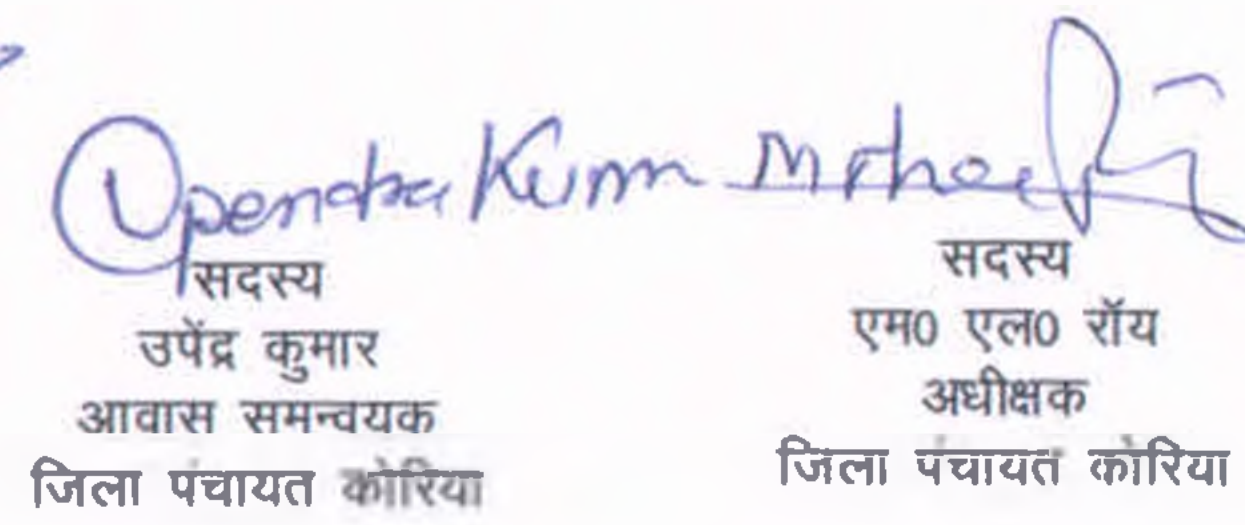 Upendra Kumar
सदस्य
उपेंद्र कुमार
आवास समन्वयक
जिला पंचायत कोरिया
सदस्य
एम0 एल0 रॉय
अधीक्षक
जिला पंचायत कोरिया